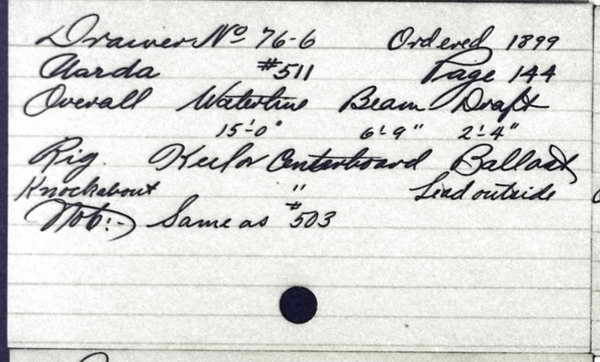 Drawer No 76-6 Ordered 1899
Narda #511 Page 144
Overall Waterline Beam Draft
15'-0" 6'-9" 2'-4"
Rig. Keel or Centerboard Ballast
Knockabout " Lead outside
Note:- Same as #503